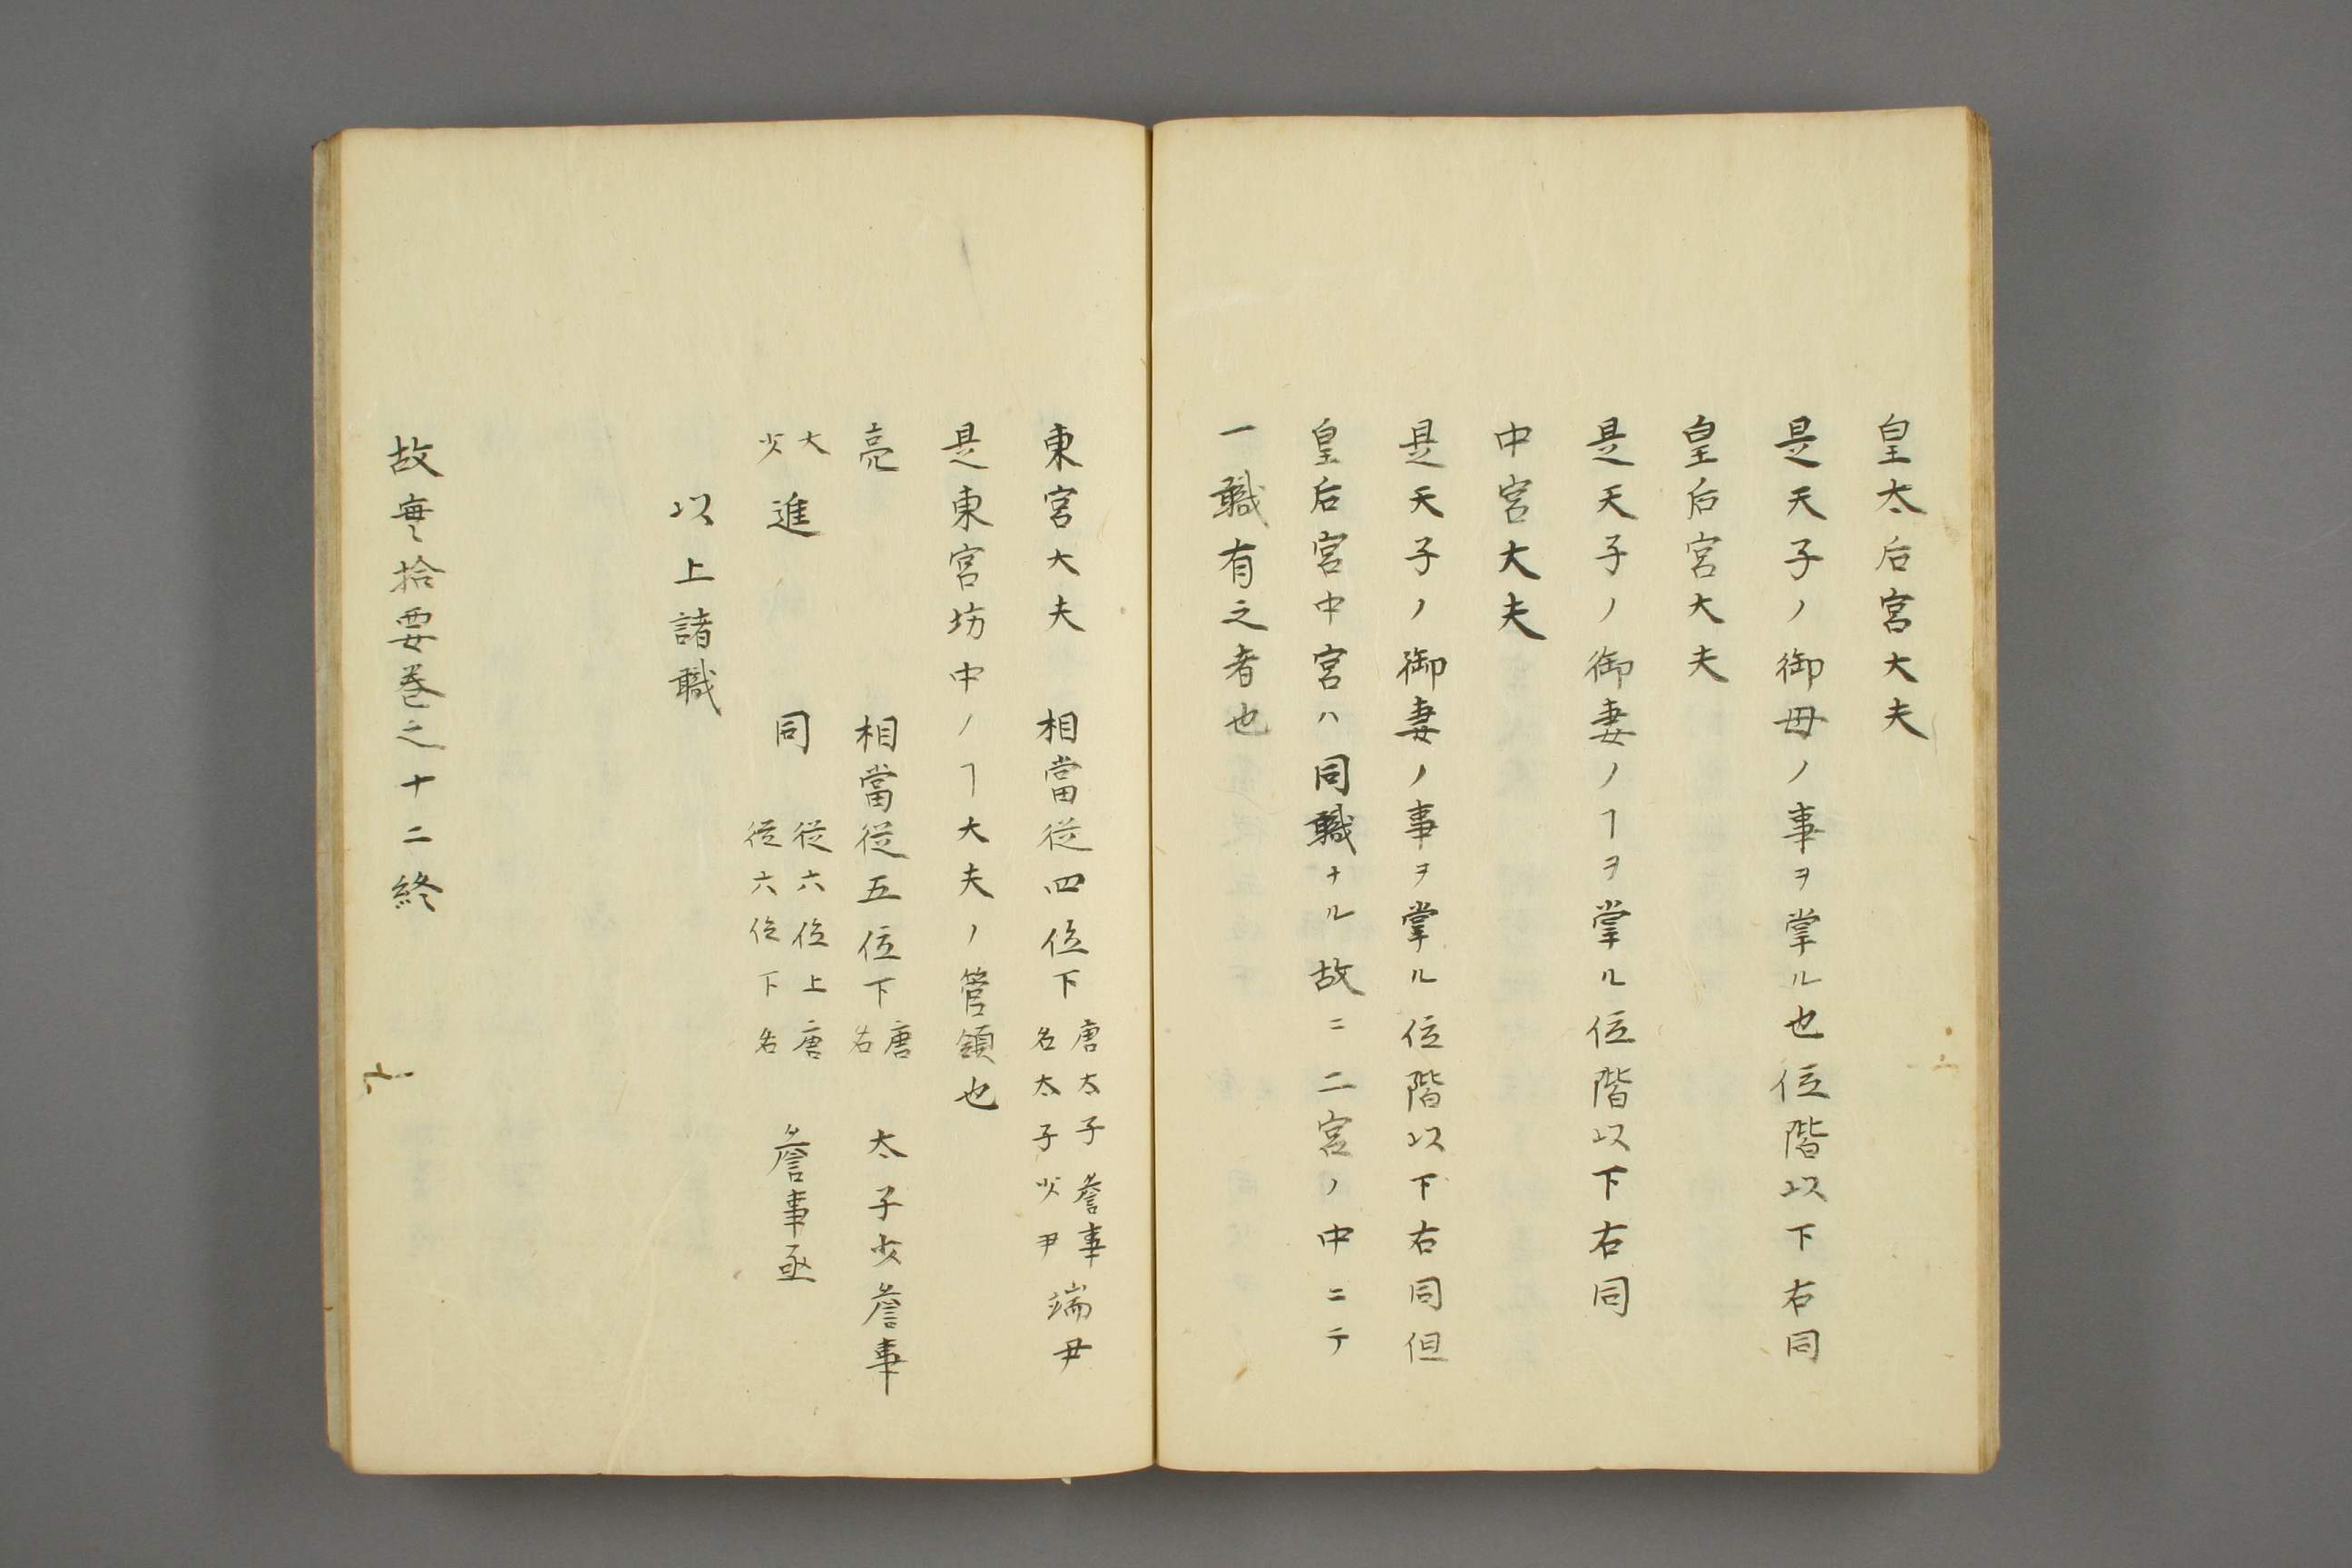 皇太后宮大夫
是天子ノ御母ノ事ヲ掌ル也位階以下右同
皇后宮大夫
是天子ノ御妻ノヿヲ掌ル位階以下右同
中宮大夫
是天子ノ御妻ノ事ヲ掌ル位階以下右同但
皇后宮中宮ハ同職ナル故ニ二宮ノ中ニテ
一職有之者也
東宮大夫 相當従四位下 唐太子詹事 名太子少尹 端尹
是東宮坊中ノヿ大夫ノ管領也
亮 相當従五位下 唐名 太子少詹事
大少進 同 従六位上唐 従六位下名 詹事丞
以上諸職
故実拾要巻之十二終